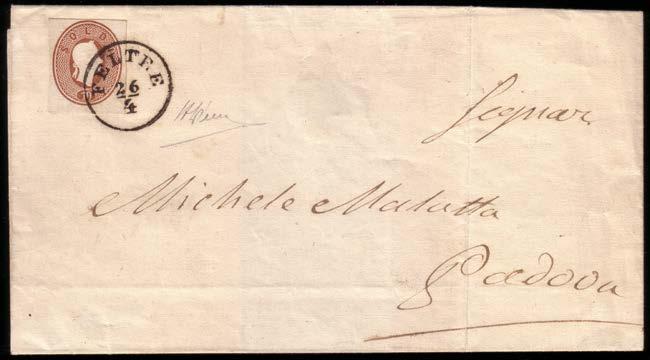 SOLDI
FELTRE
26
4
Signor
Michele Malutta
Padova